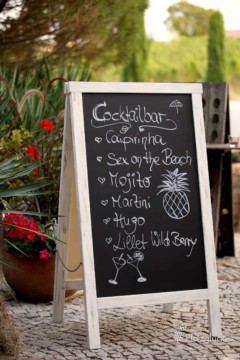 Cocktailbar
Caipirinha
Sex on the Beach
Mojito
Martini
Hugo
Lillet Wild Berry